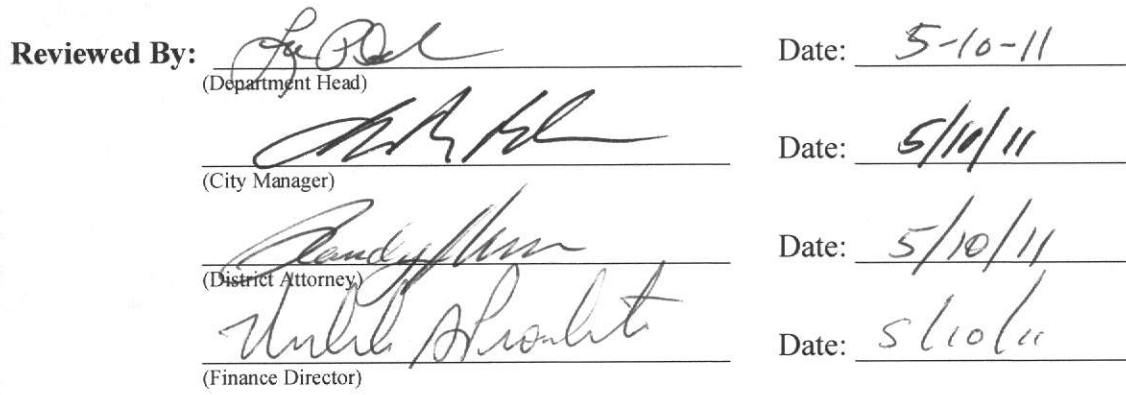 Reviewed By: Date: 5-10-11
(Department Head)
Date: 5/10/11
(City Manager)
Randy Date: 5/10/11
(District Attorney)
Date: 5/10/11
(Finance Director)